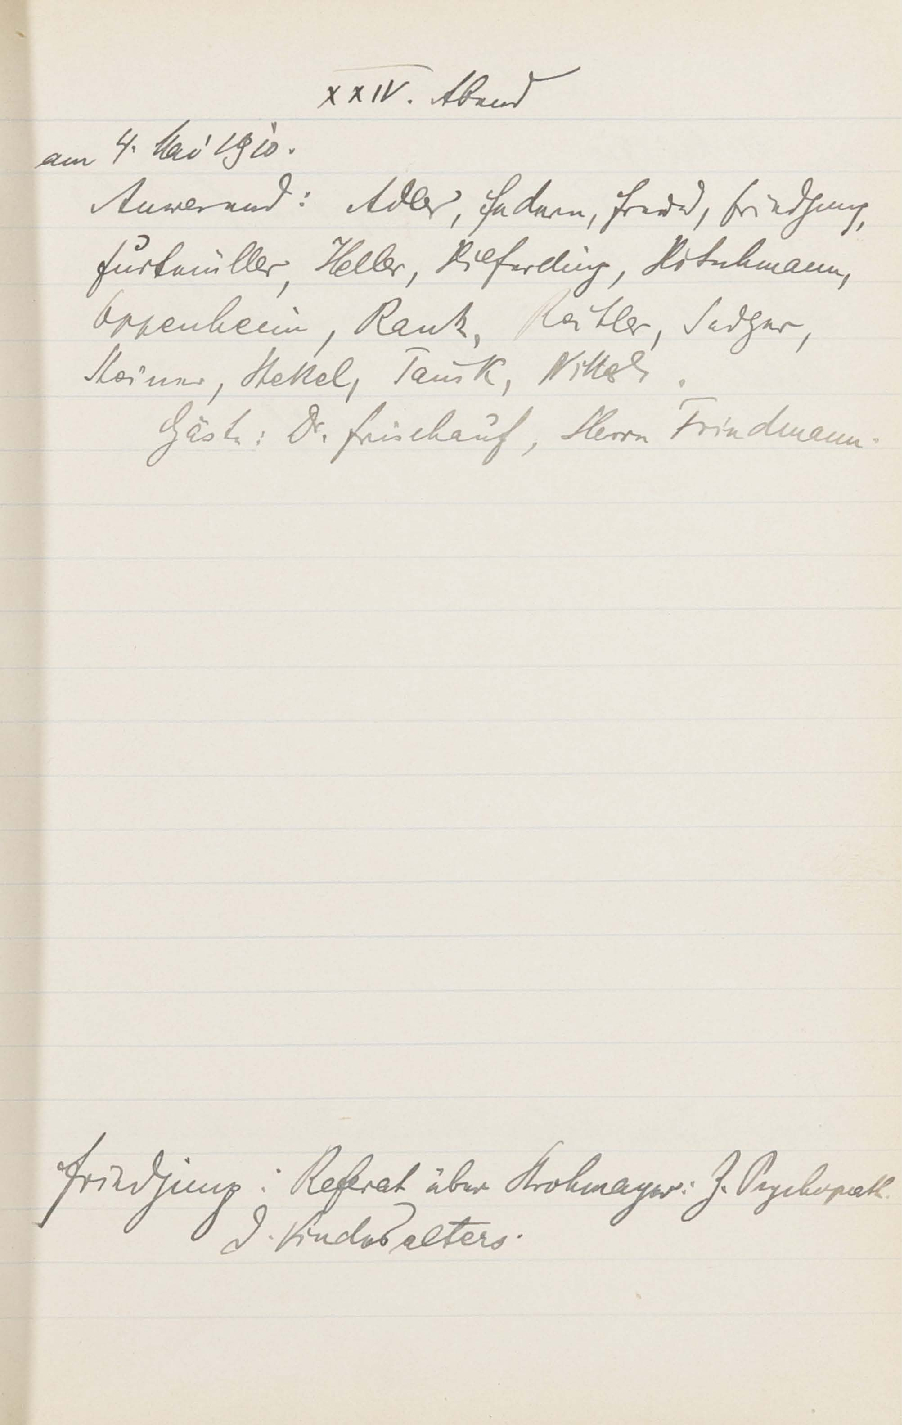 XXIV. Abend
am 4. Mai 1910.
Anwesend: Adler, Federn, Freud, Friedjung,
Furtmüller, Heller, Hilferding, Hitschmann,
Oppenheim, Rank, Reitler, Sadger,
Steiner, Stekel, Tausk, Wittels.
Gäste: Dr. Frischauf, Herr Friedmann.
Friedjung: Referat über Strohmayer: Z. Psychopath.
d. Kindesalters.